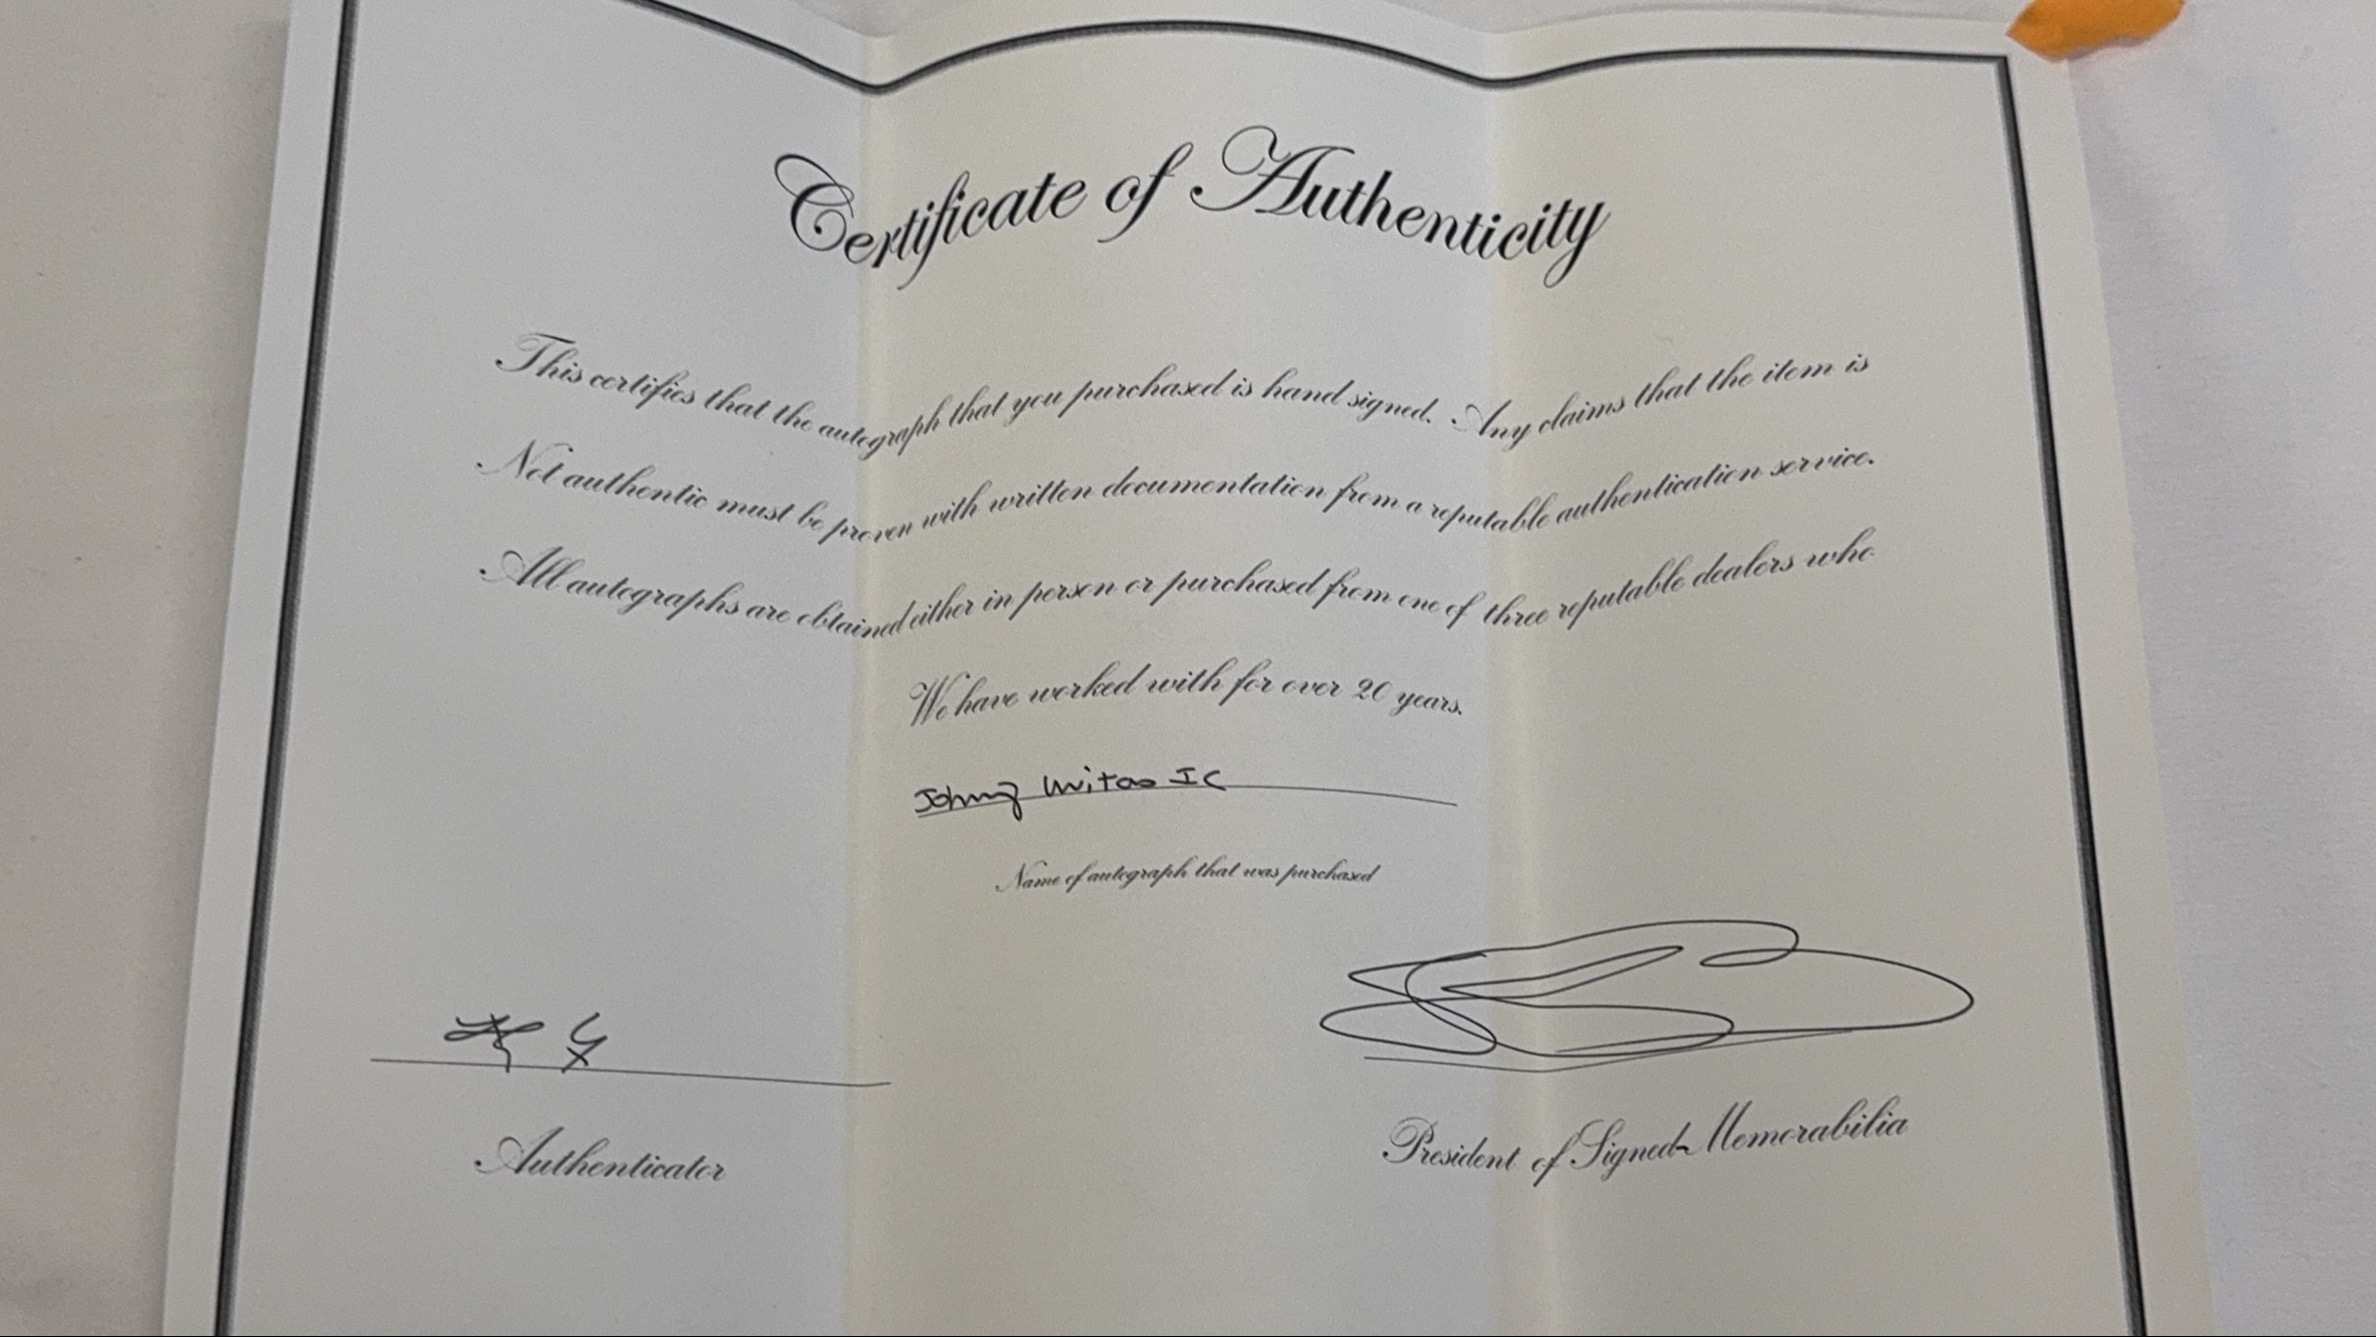 Certificate of Authenticity
This certifies that the autograph that you purchased is hand signed. Any claims that the item is
Not authentic must be proven with written documentation from a reputable authentication service.
All autographs are obtained either in person or purchased from one of three reputable dealers who
We have worked with for over 20 years.
Johnny Unitas IC
Name of autograph that was purchased
Authenticator
President of Signed-Memorabilia